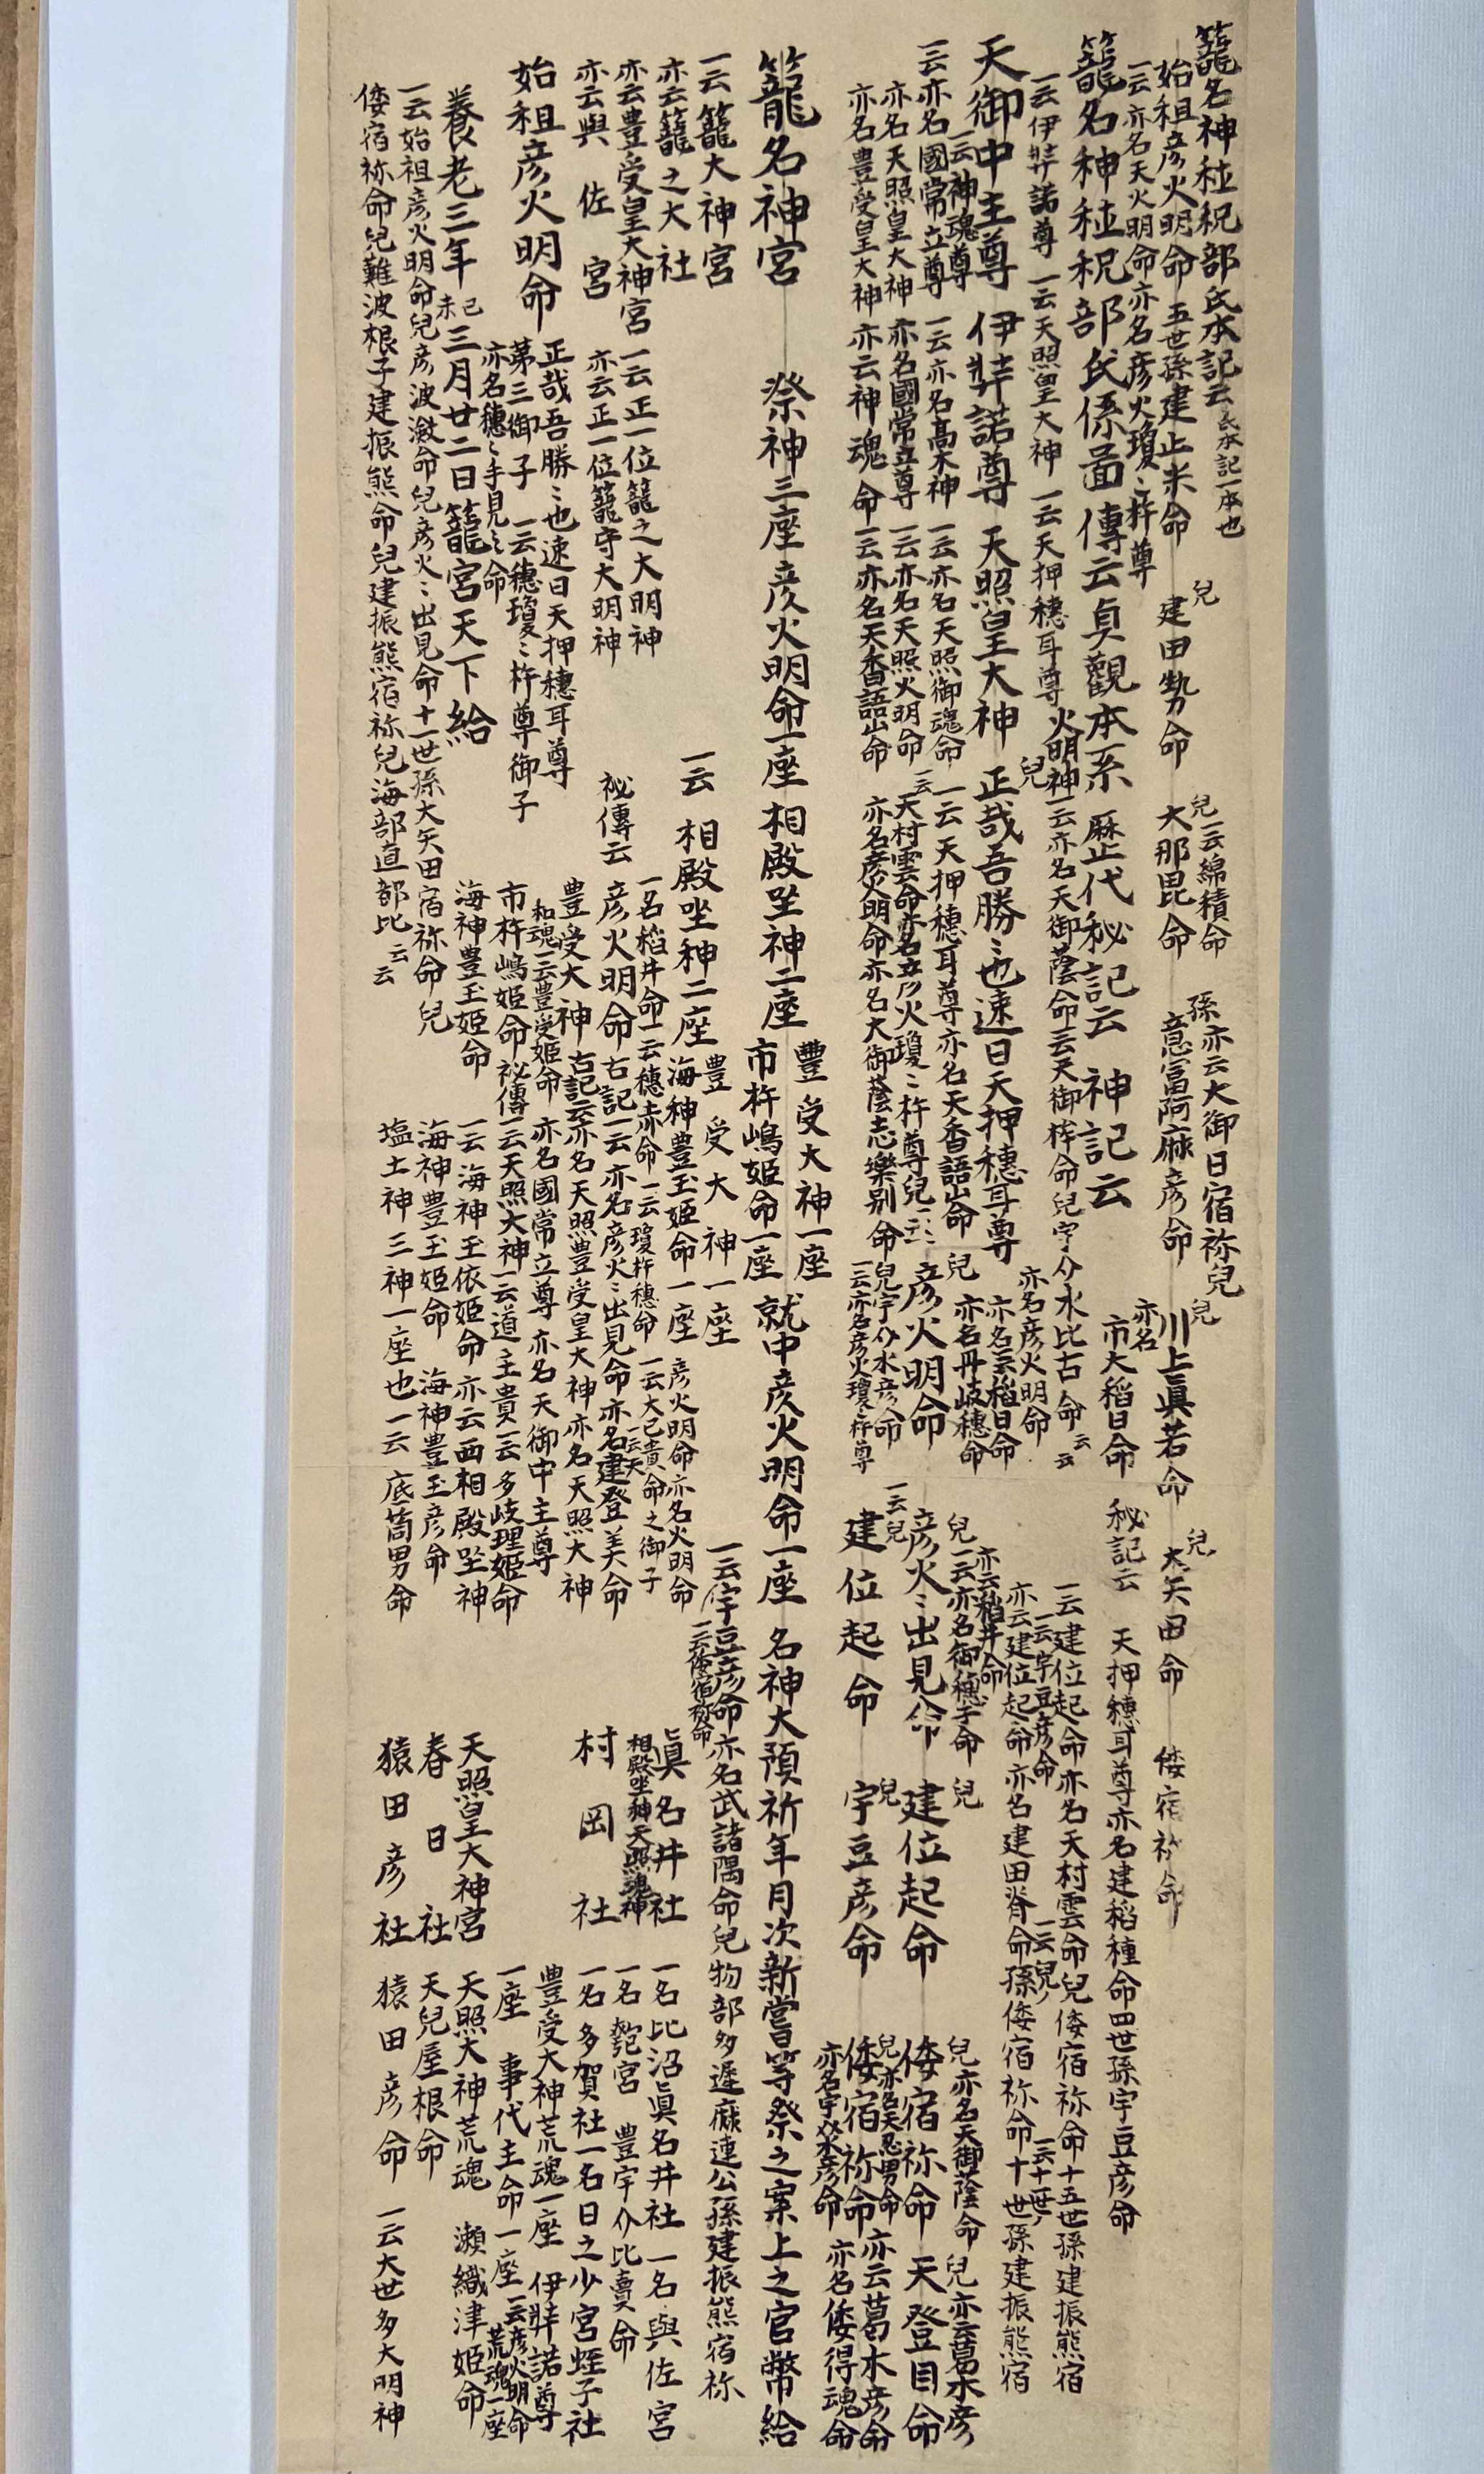 籠名神社祝部氏本記云 氏本記一本也
始祖彦火明命 五世孫建止米命 兒 建田勢命 兒一云綿積命 大那毘命 孫亦云大御日宿祢兒 意富阿麻彦命 兒 川上眞若命 兒 大矢田命 倭宿祢命
一云亦名天火明命亦名彦火瓊〻杵尊 亦名 市大稲日命 秘記云 天押穂耳尊亦名建稲種命四世孫宇豆彦命
籠名神社祝部氏係圖傳云貞觀本系 歴代秘記云 神記云
一云伊弉諾尊 一云天照皇大神 一云天押穂耳尊 火明神一云亦名天御蔭命一云天御桙命兒宇介水比古命云云 一云建位起命亦名天村雲命兒倭宿祢命十五世孫建振熊宿
亦名彦火明命 亦云建位起命亦名建田脊命孫倭宿祢命十世孫建振熊宿
一云宇豆彦命 一云兒 一云十一世
天御中主尊 伊弉諾尊 天照皇大神 兒 正哉吾勝〻也速日天押穂耳尊 兒 彦火明命 兒 彦火〻出見命 兒 建位起命 倭宿祢命 天登目命
一云神魂尊
亦名云稲日命 亦云稲井命
亦名丹岐穂命 一云亦名御穂子命 兒亦名天御蔭命 兒亦云葛木彦
一云亦名國常立尊 一云亦名高木神 一云亦名天照御魂命 一云天押穂耳尊亦名天香語山命
亦名天照皇大神 亦名國常立尊 一云亦名天照火明命 一云天村雲命亦名彦火瓊〻杵尊兒 兒宇介水彦命 一云兒 建位起命 兒 宇豆彦命 兒亦名天忍男命 倭宿祢命 亦云葛木彦命
亦名豊受皇大神 亦云神魂命 一云亦名天香語山命 亦名彦火明命亦名大御蔭志樂別命 一云亦名彦火瓊〻杵尊 亦名宇介水彦命 亦名倭得魂命
籠名神宮 祭神三座彦火明命一座 相殿坐神二座 豊受大神一座 市杵嶋姫命一座 就中彦火明命一座 名神大預祈年月次新嘗等祭之案上之官幣給
一云籠大神宮 一云 相殿坐神二座 豊受大神一座 海神豊玉姫命一座 一云宇豆彦命亦名武諸隅命兒物部多遅麻連公孫建振熊宿祢
一云倭宿祢命
彦火明命亦名火明命
亦云籠之大社 一云正一位籠之大明神 一名稲井命一云穂赤命一云瓊杵穂命 一云大己貴命之御子 一云天
眞名井社 一名比沼眞名井社 一名與佐宮
相殿坐神天照魂神
亦云豊受皇大神宮 亦云正一位籠守大明神 秘傳云 彦火明命 古記一云亦名彦火〻出見命亦名建登美命
一名匏宮 豊宇介比賣命
亦云與佐宮 豊受大神 古記云亦名天照豊受皇大神亦名天照大神 村岡社 一名多賀社一名日之少宮蛭子社
和魂一云豊受姫命 亦名國常立尊 亦名天御中主尊 豊受大神荒魂一座 伊弉諾尊
始祖彦火明命 正哉吾勝〻也速日天押穂耳尊
第三御子 一云穂瓊〻杵尊御子
亦名穂〻手見之命
市杵嶋姫命 秘傳一云天照大神一云道主貴一云多岐理姫命 一座 事代主命一座 一云彦火明命荒魂一座
養老三年己未三月廿二日籠宮天下給 海神豊玉姫命 一云海神玉依姫命 亦云西相殿坐神 天照皇大神宮 天照大神荒魂 瀬織津姫命
一云始祖彦火明命兒彦波瀲命兒彦火〻出見命十一世孫大矢田宿祢命兒 海神豊玉姫命 海神豊玉彦命 春日社 天兒屋根命
倭宿祢命兒難波根子建振熊命兒建振熊宿祢兒海部直都比云云 塩土神三神一座也一云底筒男命 猿田彦社 猿田彦命 一云大世多大明神